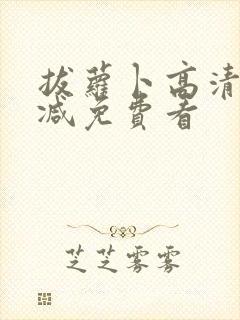 拔蘿卜高清
减免費看
芝芝雾雾